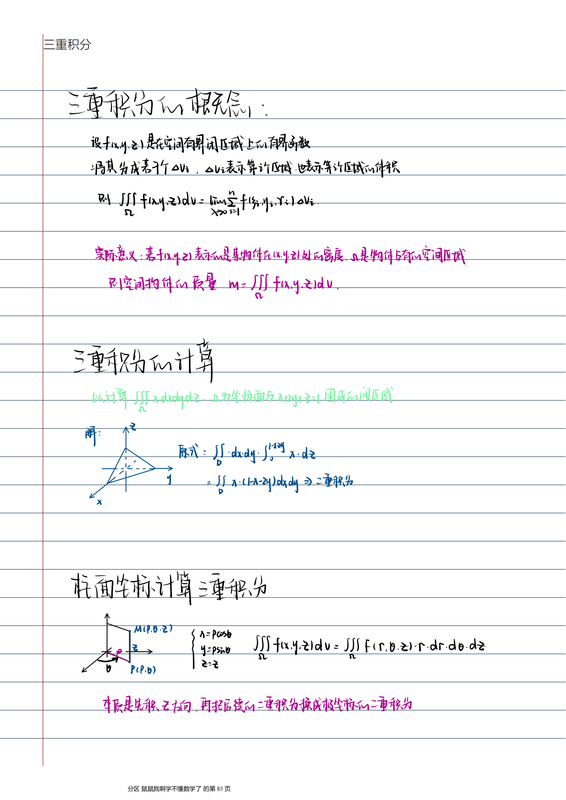 三重积分
三重积分的概念:
设f(x,y,z)是在空间有界闭区域上的有界函数
将其分成若干个ΔVi, ΔVi表示第i个区域,也表示第i个区域的体积
则 ∭Ω f(x,y,z)dv = lim λ→0 Σ i=1 n f(ξi,ηi,γi)ΔVi.
实际意义:若f(x,y,z)表示的是某物件在(x,y,z)处的密度,Ω是物件占有的空间区域
则空间物件的质量 m=∭Ω f(x,y,z)dv.
三重积分的计算
计算 ∭Ω x dxdydz Ω为坐标面与x+2y+z=1围成的闭区域
解: z y x
原式 = ∬D ·dxdy·∫0 1-x-2y x·dz
= ∬D x·(1-x-2y)dxdy ⇒ 二重积分
柱面坐标计算三重积分
M(ρ,θ,z) z ρ θ P(ρ,θ)
{ x=ρcosθ y=ρsinθ z=z
∭Ω f(x,y,z)dv = ∭Ω f(r,θ,z)·r·dr·dθ·dz
本质是先积z方向,再把后续的二重积分换成极坐标的二重积分
分区 鼠鼠我啊学不懂数学了 的第 85 页